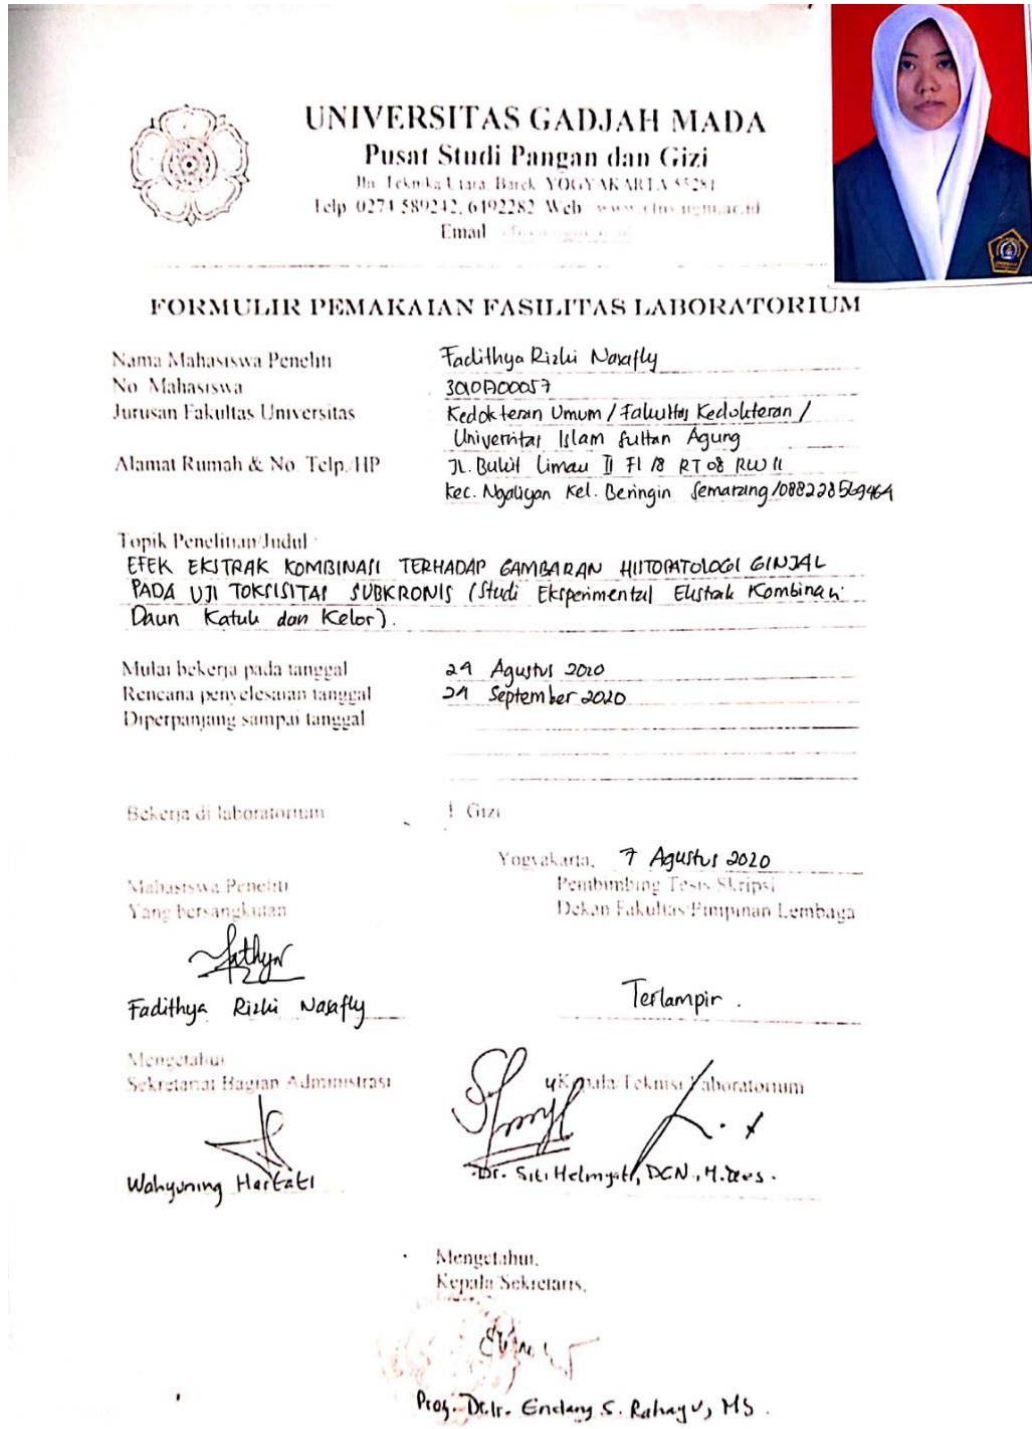 UNIVERSITAS GADJAH MADA
Pusat Studi Pangan dan Gizi
Jln. Teknika Utara Barek YOGYAKARTA 55281
Telp. 0274 589242, 6492282 Web
Email
FORMULIR PEMAKAIAN FASILITAS LABORATORIUM
Nama Mahasiswa Peneliti Fadithya Rizki Nasafly
No. Mahasiswa
Jurusan Fakultas Universitas Kedokteran Umum / Fakultas Kedokteran /
Universitas Islam Sultan Agung
Alamat Rumah & No. Telp./HP Jl. Bukit Limau II F1/8 RT 08 RW 11
Kec. Ngaliyan Kel. Beringin Semarang /088228569464
Topik Penelitian/Judul :
EFEK EKSTRAK KOMBINASI TERHADAP GAMBARAN HISTOPATOLOGI GINJAL
PADA UJI TOKSISITAS SUBKRONIS (Studi Eksperimental Ekstrak Kombinasi
Daun Katuk dan Kelor).
Mulai bekerja pada tanggal 24 Agustus 2020
Rencana penyelesaian tanggal September 2020
Diperpanjang sampai tanggal
Bekerja di laboratorium 1. Gizi
Yogyakarta, 7 Agustus 2020
Mahasiswa Peneliti Pembimbing Tesis Skripsi
Yang bersangkutan Dekan Fakultas/Pimpinan Lembaga
Fadithya Rizki Nasafly Terlampir.
Mengetahui
Sekretariat Bagian Administrasi Kepala/Teknisi Laboratorium
Wahyuning Hartati Dr. Siti Helmyati, DCN., M.Kes.
Mengetahui,
Kepala/Sekretaris,
Prof. Dr. Ir. Endang S. Rahayu, MS.